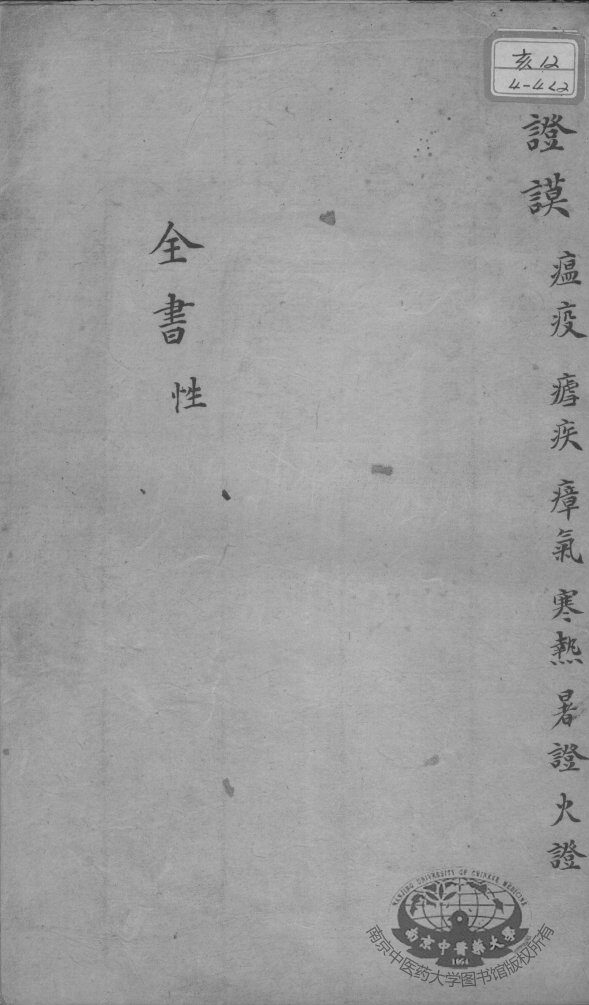 亥12
4-422
證謨
瘟疫 瘧疾 瘴氣 寒熱 暑證 火證
全書 性
NANJING UNIVERSITY OF CHINESE MEDICINE
南京中醫藥大學
1954
南京中医药大学图书馆版权所有